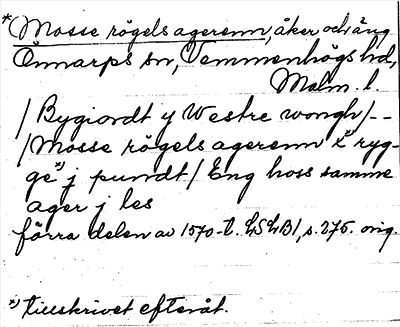 *Mosse rögels agerenn, åker och äng
Önnarps sn, Vemmenhögs hd,
Malm. l.
/ Bygiordt y Westre wongh/--
/Mosse rögels agerenn x ryg-
ge *) j pundt/ Eng hoss samme
ager j les
förra delen av 1570-t. LSLB1, s. 275. orig.
*) tillskrivet efteråt.